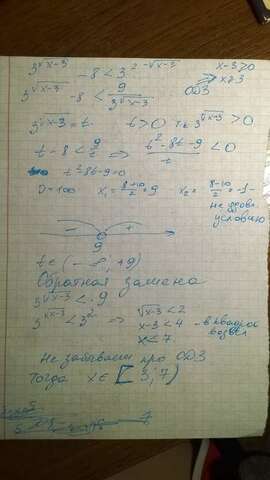 3^√x-3 - 8 < 3^2-√x-3    x-3≥0
3^√x-3 - 8 < 9/3^√x-3    ⇒ x≥3
ОДЗ
3^√x-3 = t    t>0 т.к 3^√x-3 > 0
t - 8 < 9/t ⇒ t²-8t-9/t < 0
t²-8t-9=0
D=100    x₁ = 8+10/2 = 9    x₂ = 8-10/2 = -1
не удовл.
условию
- +
9
t ∈ (-∞, +9)
Обратная замена
3^√x-3 < 9
3^√x-3 < 3² ⇒ √x-3 < 2
x-3 < 4 - в квадрат
x ≤ 7 возвел
Не забываем про ОДЗ
Тогда x ∈ [3; 7)